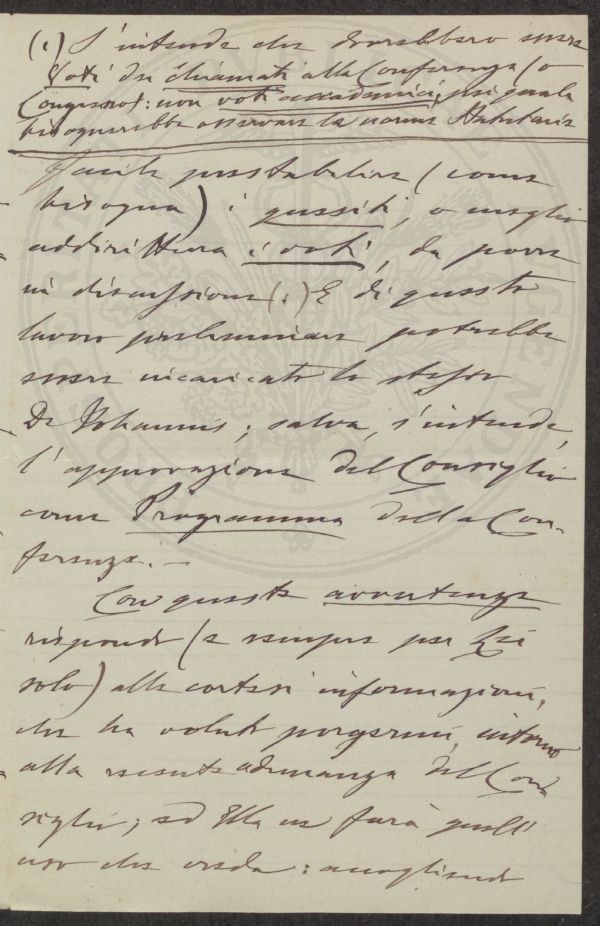 (1) S'intende che dovrebbero essere
Voti dei chiamati alla Conferenza (o
Congresso): non voti accademici, pei quali
bisognerebbe osservare le norme Statutarie
facile prestabilire (come
bisogna) i quesiti, o meglio
addirittura i voti, da porre
in discussione (1) E di questo
lavoro preliminare potrebbe
essere incaricato lo stesso
De Johannis; salva, s'intende,
l'approvazione del Consiglio
come Programma della Con-
ferenza. —
Con queste avvertenze
rispondo (e sempre per Lei
solo) alle cortesi informazioni,
che ha voluto porgermi, intorno
alla recente adunanza del Con
siglio; ed Ella ne farà quell'
uso che creda: accogliendo